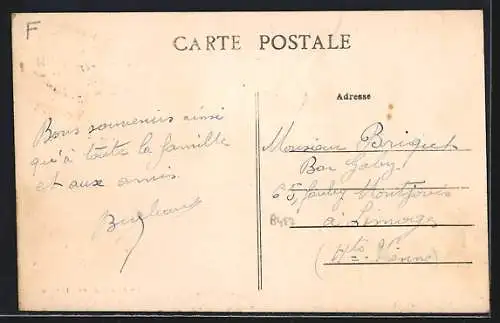 F
CARTE POSTALE
Adresse
Bons souvenirs ainsi
qu'à toute la famille
et aux amis.
Monsieur Briguet
Bar Gaby
Montjovis
à Limoges
(Hte Vienne)